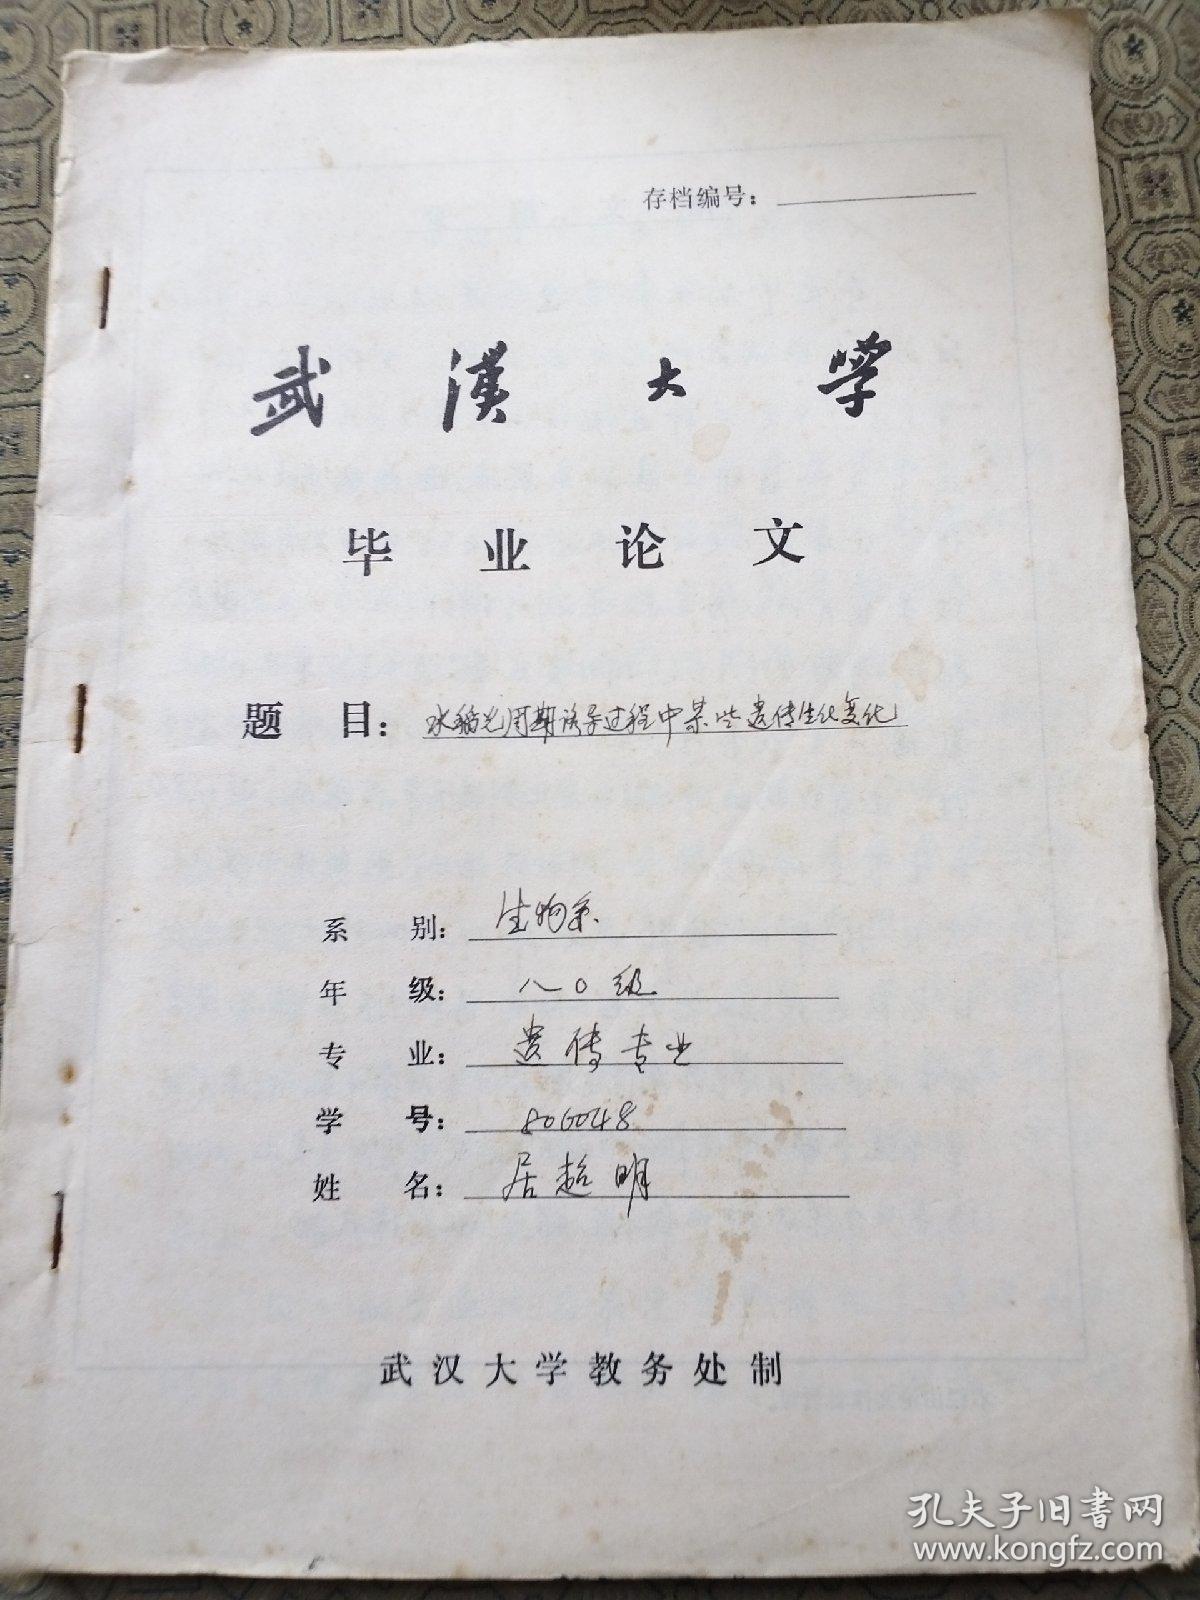 存档编号：
武漢大學
毕业论文
题目：水稻光周期诱导过程中某些遗传生化变化
系别：生物系
年级：八〇级
专业：遗传专业
学号：806048
姓名：居超明
武汉大学教务处制
孔夫子旧书网
www.kongfz.com